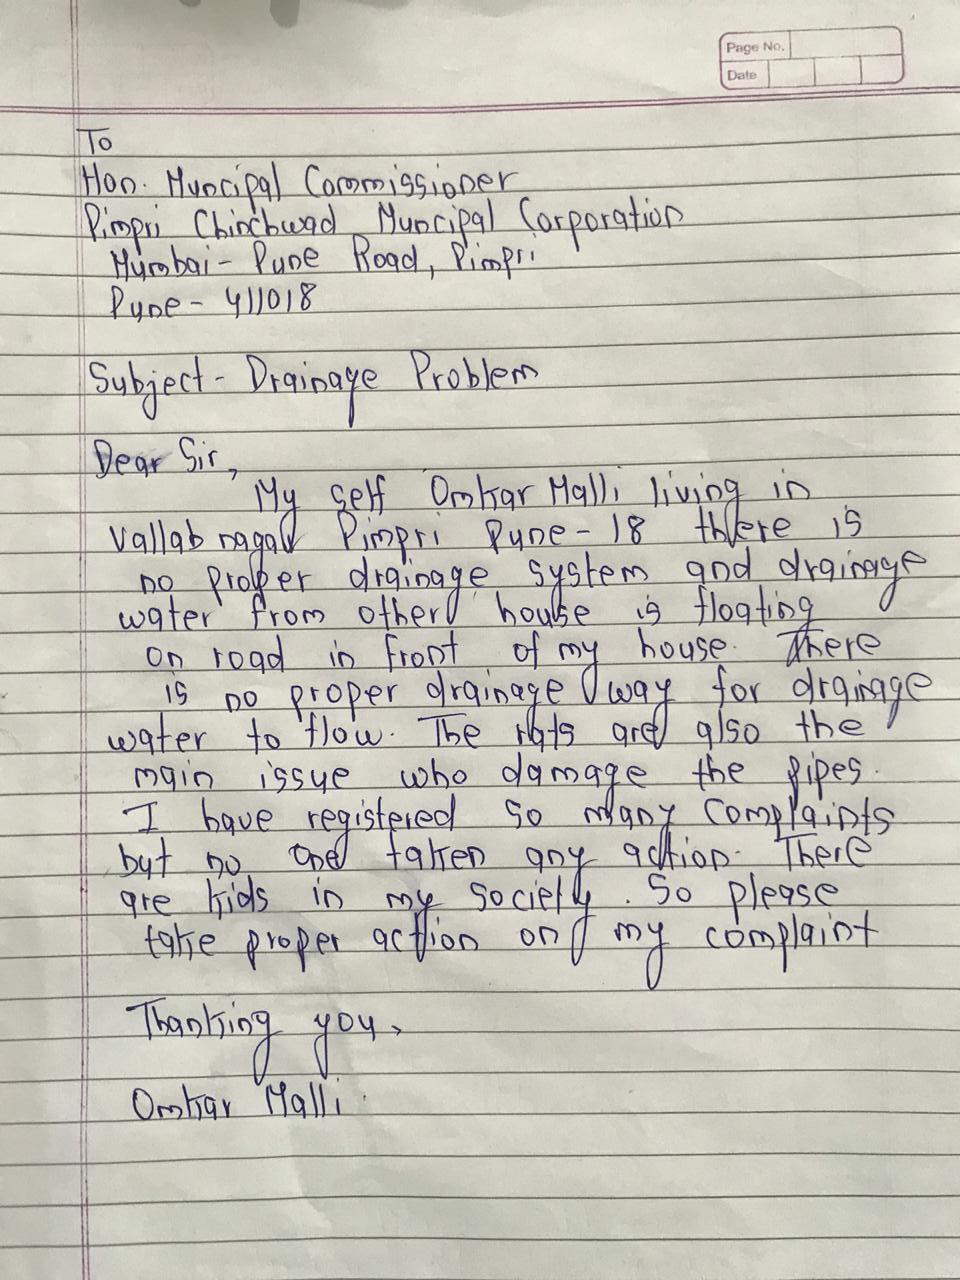 Page No.
Date
To
Hon. Muncipal Commissioner
Pimpri Chinchwad Muncipal Corporation
Mumbai - Pune Road, Pimpri
Pune - 411018
Subject - Drainage Problem
Dear Sir,
My self Omkar Malli living in
vallab nagar Pimpri Pune - 18 there is
no proper drainage system and drainage
water from other house is floating
on road in front of my house. There
is no proper drainage way for drainage
water to flow. The rats are also the
main issue who damage the pipes.
I have registered so many complaints
but no one taken any action. There
are kids in my society. So please
take proper action on my complaint
Thanking you,
Omkar Malli